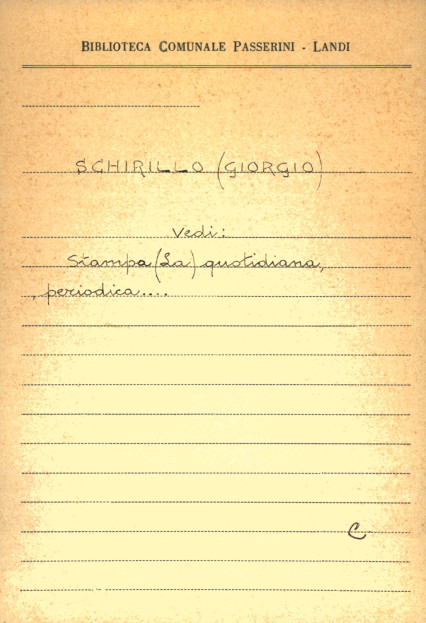 BIBLIOTECA COMUNALE PASSERINI - LANDI
SCHIRILLO (GIORGIO)
Vedi:
Stampa (La) quotidiana,
, periodica....
C